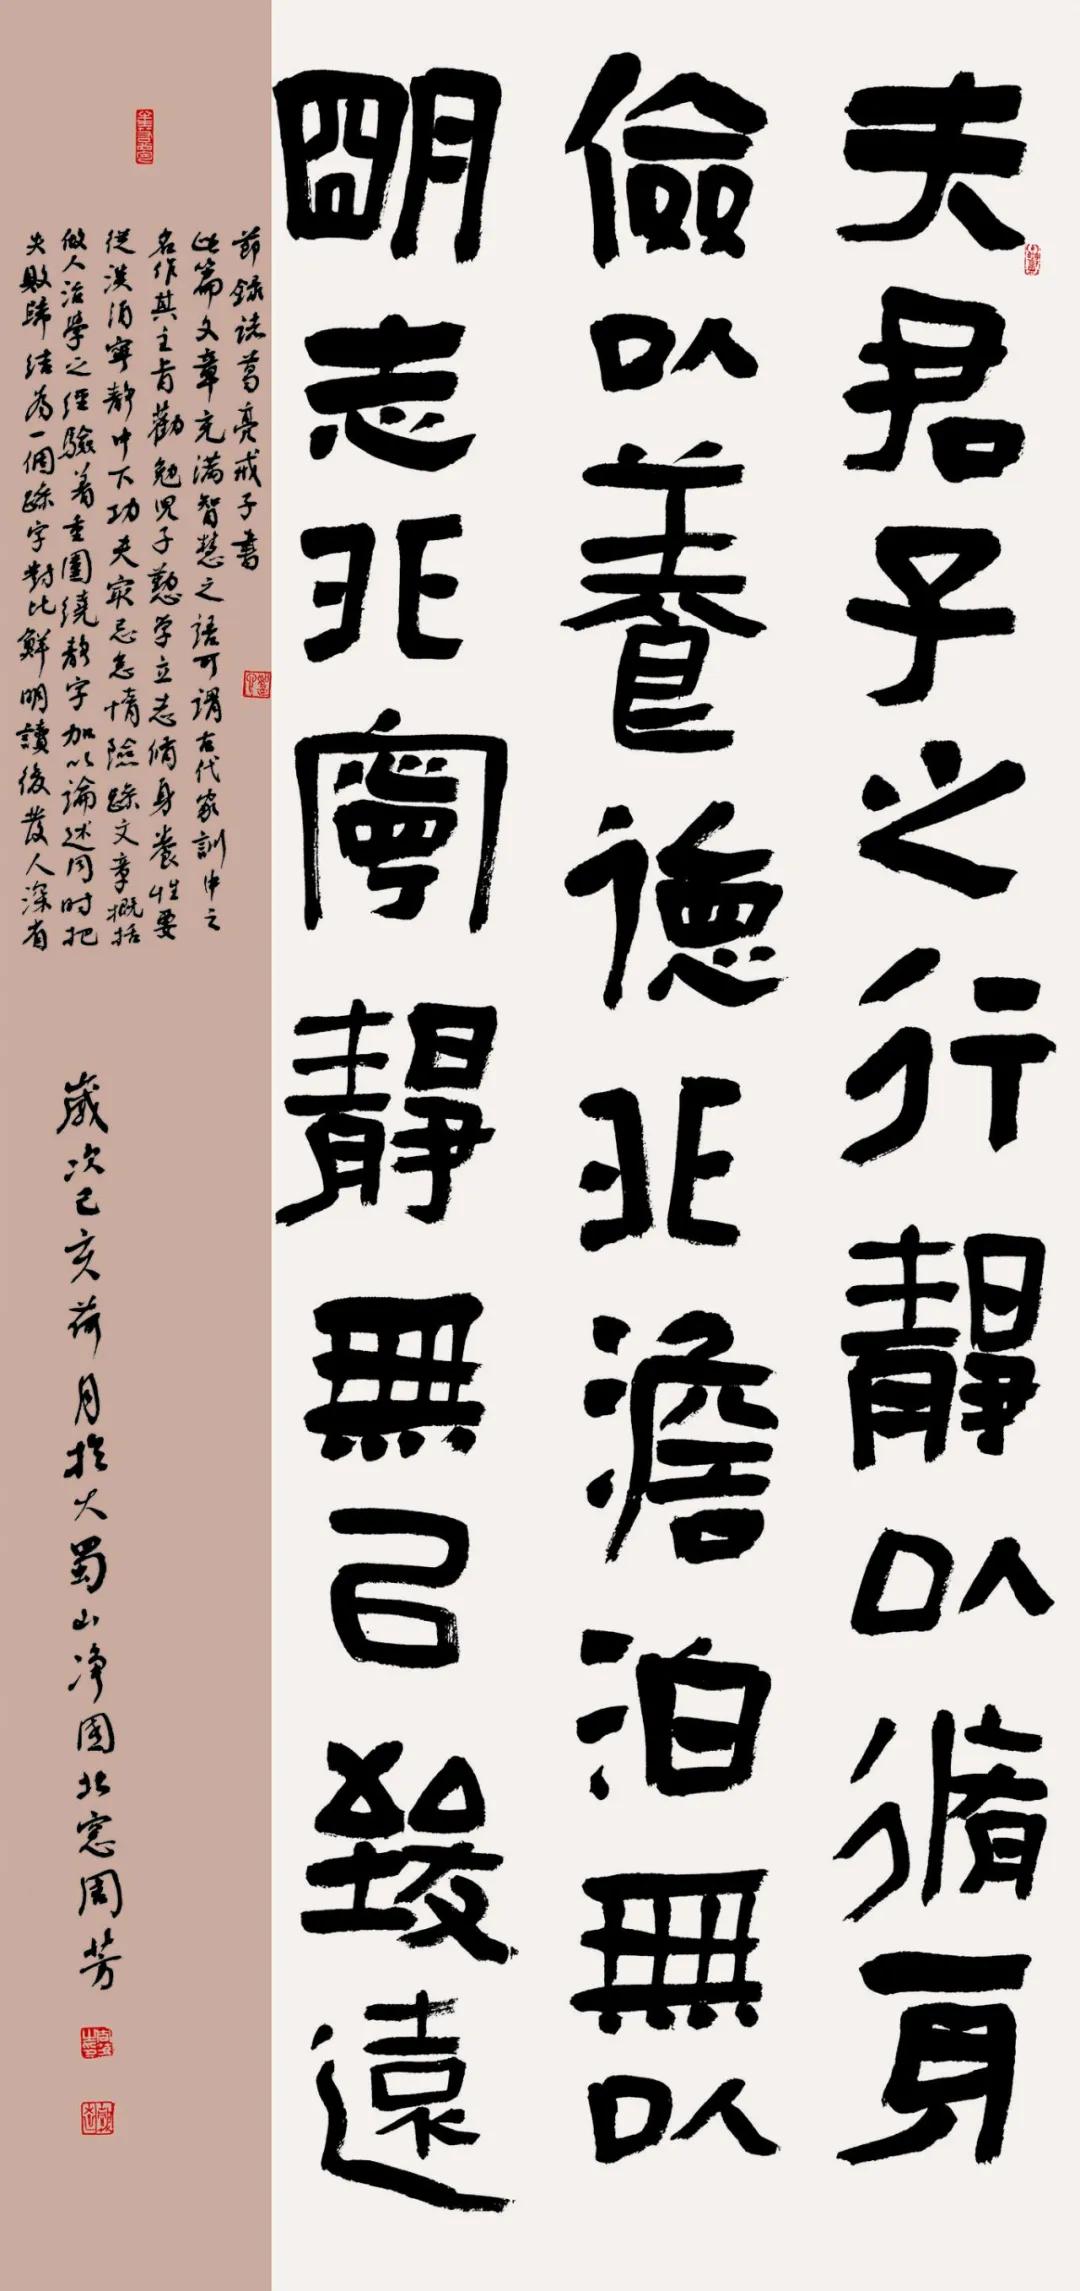 夫君子之行靜以脩身
儉以養德非澹泊無以
明志非寧靜無以致遠
節錄諸葛亮戒子書
此篇文章充滿智慧之語可謂古代家訓中之
名作其主旨勸勉兒子勤學立志脩身養性要
從淡泊寧靜中下功夫最忌怠惰險躁文章概括
做人治學之經驗着重圍繞靜字加以論述同时把
失敗歸結為一個躁字對比鮮明讀後發人深省
歲次己亥荷月於大蜀山淨園北窓周芳